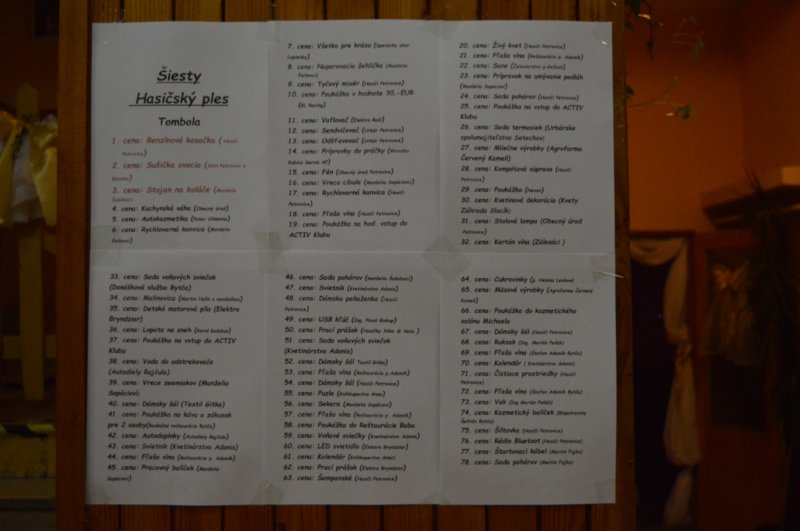 Šiesty
Hasičský ples
Tombola
1. cena: Benzínová kosačka ( Hasiči
Petrovice)
2. cena: Sušička ovocia
3. cena: Stojan na koláče (Manželia
4. cena: Kuchynská váha (Obecný úrad)
5. cena: Autokozmetika (Peter
6. cena: Rychlovarná kanvica (Manželia
7. cena: Všetko pre krásu (Spevácky zbor
8. cena: Naparovacia žehlička (Manželia
9. cena: Tyčový mixér (Hasiči Petrovice)
10. cena: Poukážka v hodnote 30,-EUR
11. cena: Vaflovač (Elektro
12. cena: Sendvičovač (Urbár Petrovice)
13. cena: Odšťavovač (Urbár Petrovice)
14. cena: Prípravky do práčky (Miroslav
15. cena: Fén (Obecný úrad Petrovice)
16. cena: Vreco cibule (Manželia Sapáčioví)
17. cena: Rychlovarná kanvica (Hasiči
Petrovice)
18. cena: Fľaša vína (Hasiči Petrovice)
19. cena: Poukážka na hod. vstup do
ACTIV Klubu
20. cena: Živý kvet (Hasiči Petrovice)
21. cena: Fľaša vína (Reštaurácia p. Adamík)
22. cena: Sane
23. cena: Prípravok na umývanie podláh
(Manželia Sapáčioví)
24. cena: Sada pohárov (Hasiči Petrovice)
25. cena: Poukážka na vstup do ACTIV
Klubu
26. cena: Sada termosiek (Urbárske
spolumajiteľstvo Setechov)
27. cena: Mliečne výrobky (Agrofarma
Červený Kameň)
28. cena: Kompótová súprava (Hasiči
Petrovice)
29. cena: Poukážka
30. cena: Kvetinová dekorácia (Kvety
Záhrada Slocík)
31. cena: Stolová lampa (Obecný úrad
Petrovice)
32. cena: Kartón vína (Zálesáci )
33. cena: Sada voňavých sviečok
(Donášková služba Bytča)
34. cena: Malinovica (Martin
35. cena: Detská motorová píla (Elektro
Bryndziar)
36. cena: Lopata na sneh (Karol
37. cena: Poukážka na vstup do ACTIV
Klubu
38. cena: Voda do ostrekovača
(Autodiely Rajčula)
39. cena: Vrece zeemiakov (Manželia
Sapáčioví)
40. cena: Dámsky šál (Textil Gitka)
41. cena: Poukážka na kávu a zákusok
pre 2 osoby
42. cena: Autodoplnky (Autodiely Rajčula)
43. cena: Svietnik (Kvetinárstvo Adonis)
44. cena: Fľaša vína (Reštaurácia p. Adamík)
45. cena: Pracovný balíček (Manželia
Sapáčioví)
46. cena: Sada pohárov
47. cena: Svietnik (Kvetinárstvo Adonis)
48. cena: Dámska peňaženka (Hasiči
Petrovice)
49. cena: USB kľúč (Ing. Pavol
50. cena: Prací prášok
51. cena: Sada voňavých sviečok
(Kvetinárstvo Adonis)
52. cena: Dámsky šál (Textil Gitka)
53. cena: Fľaša vína (Reštaurácia p. Adamík)
54. cena: Dámsky šál (Hasiči Petrovice)
55. cena: Puzle (Kníhkupectvo Anna)
56. cena: Sekera (Manželia Sapáčioví)
57. cena: Fľaša vína (Reštaurácia p. Adamík)
58. cena: Poukážka do Reštaurácie Baba
59. cena: Voňavé sviečky (Kvetinárstvo Adonis)
60. cena: LED svietidlo (Elektro Bryndziar)
61. cena: Kalendár (Kníhkupectvo Anna)
62. cena: Prací prášok (Elektro Bryndziar)
63. cena: Šampanské (Hasiči Petrovice)
64. cena: Cukrovinky (p. Helena
65. cena: Mäsové výrobky (Agrofarma Červený
Kameň)
66. cena: Poukážka do kozmetického
salónu Michaela
67. cena: Dámsky šál (Hasiči Petrovice)
68. cena: Ruksak (Ing. Marián
69. cena: Fľaša vína (Štefan Adamík Bytča)
70. cena: Kalendár ( Kvetinárstvo Adonis)
71. cena: Čistiace prostriedky (Hasiči
Petrovice)
72. cena: Fľaša vína (Štefan Adamík Bytča)
73. cena: Vak (Ing. Marián
74. cena: Kozmetický balíček
75. cena: Šiltovka (Hasiči Petrovice)
76. cena: Rádio Bluetoot (Hasiči Petrovice)
77. cena: Štartovací kábel (Martin Fujko)
78. cena: Sada pohárov (Martin Fujko)